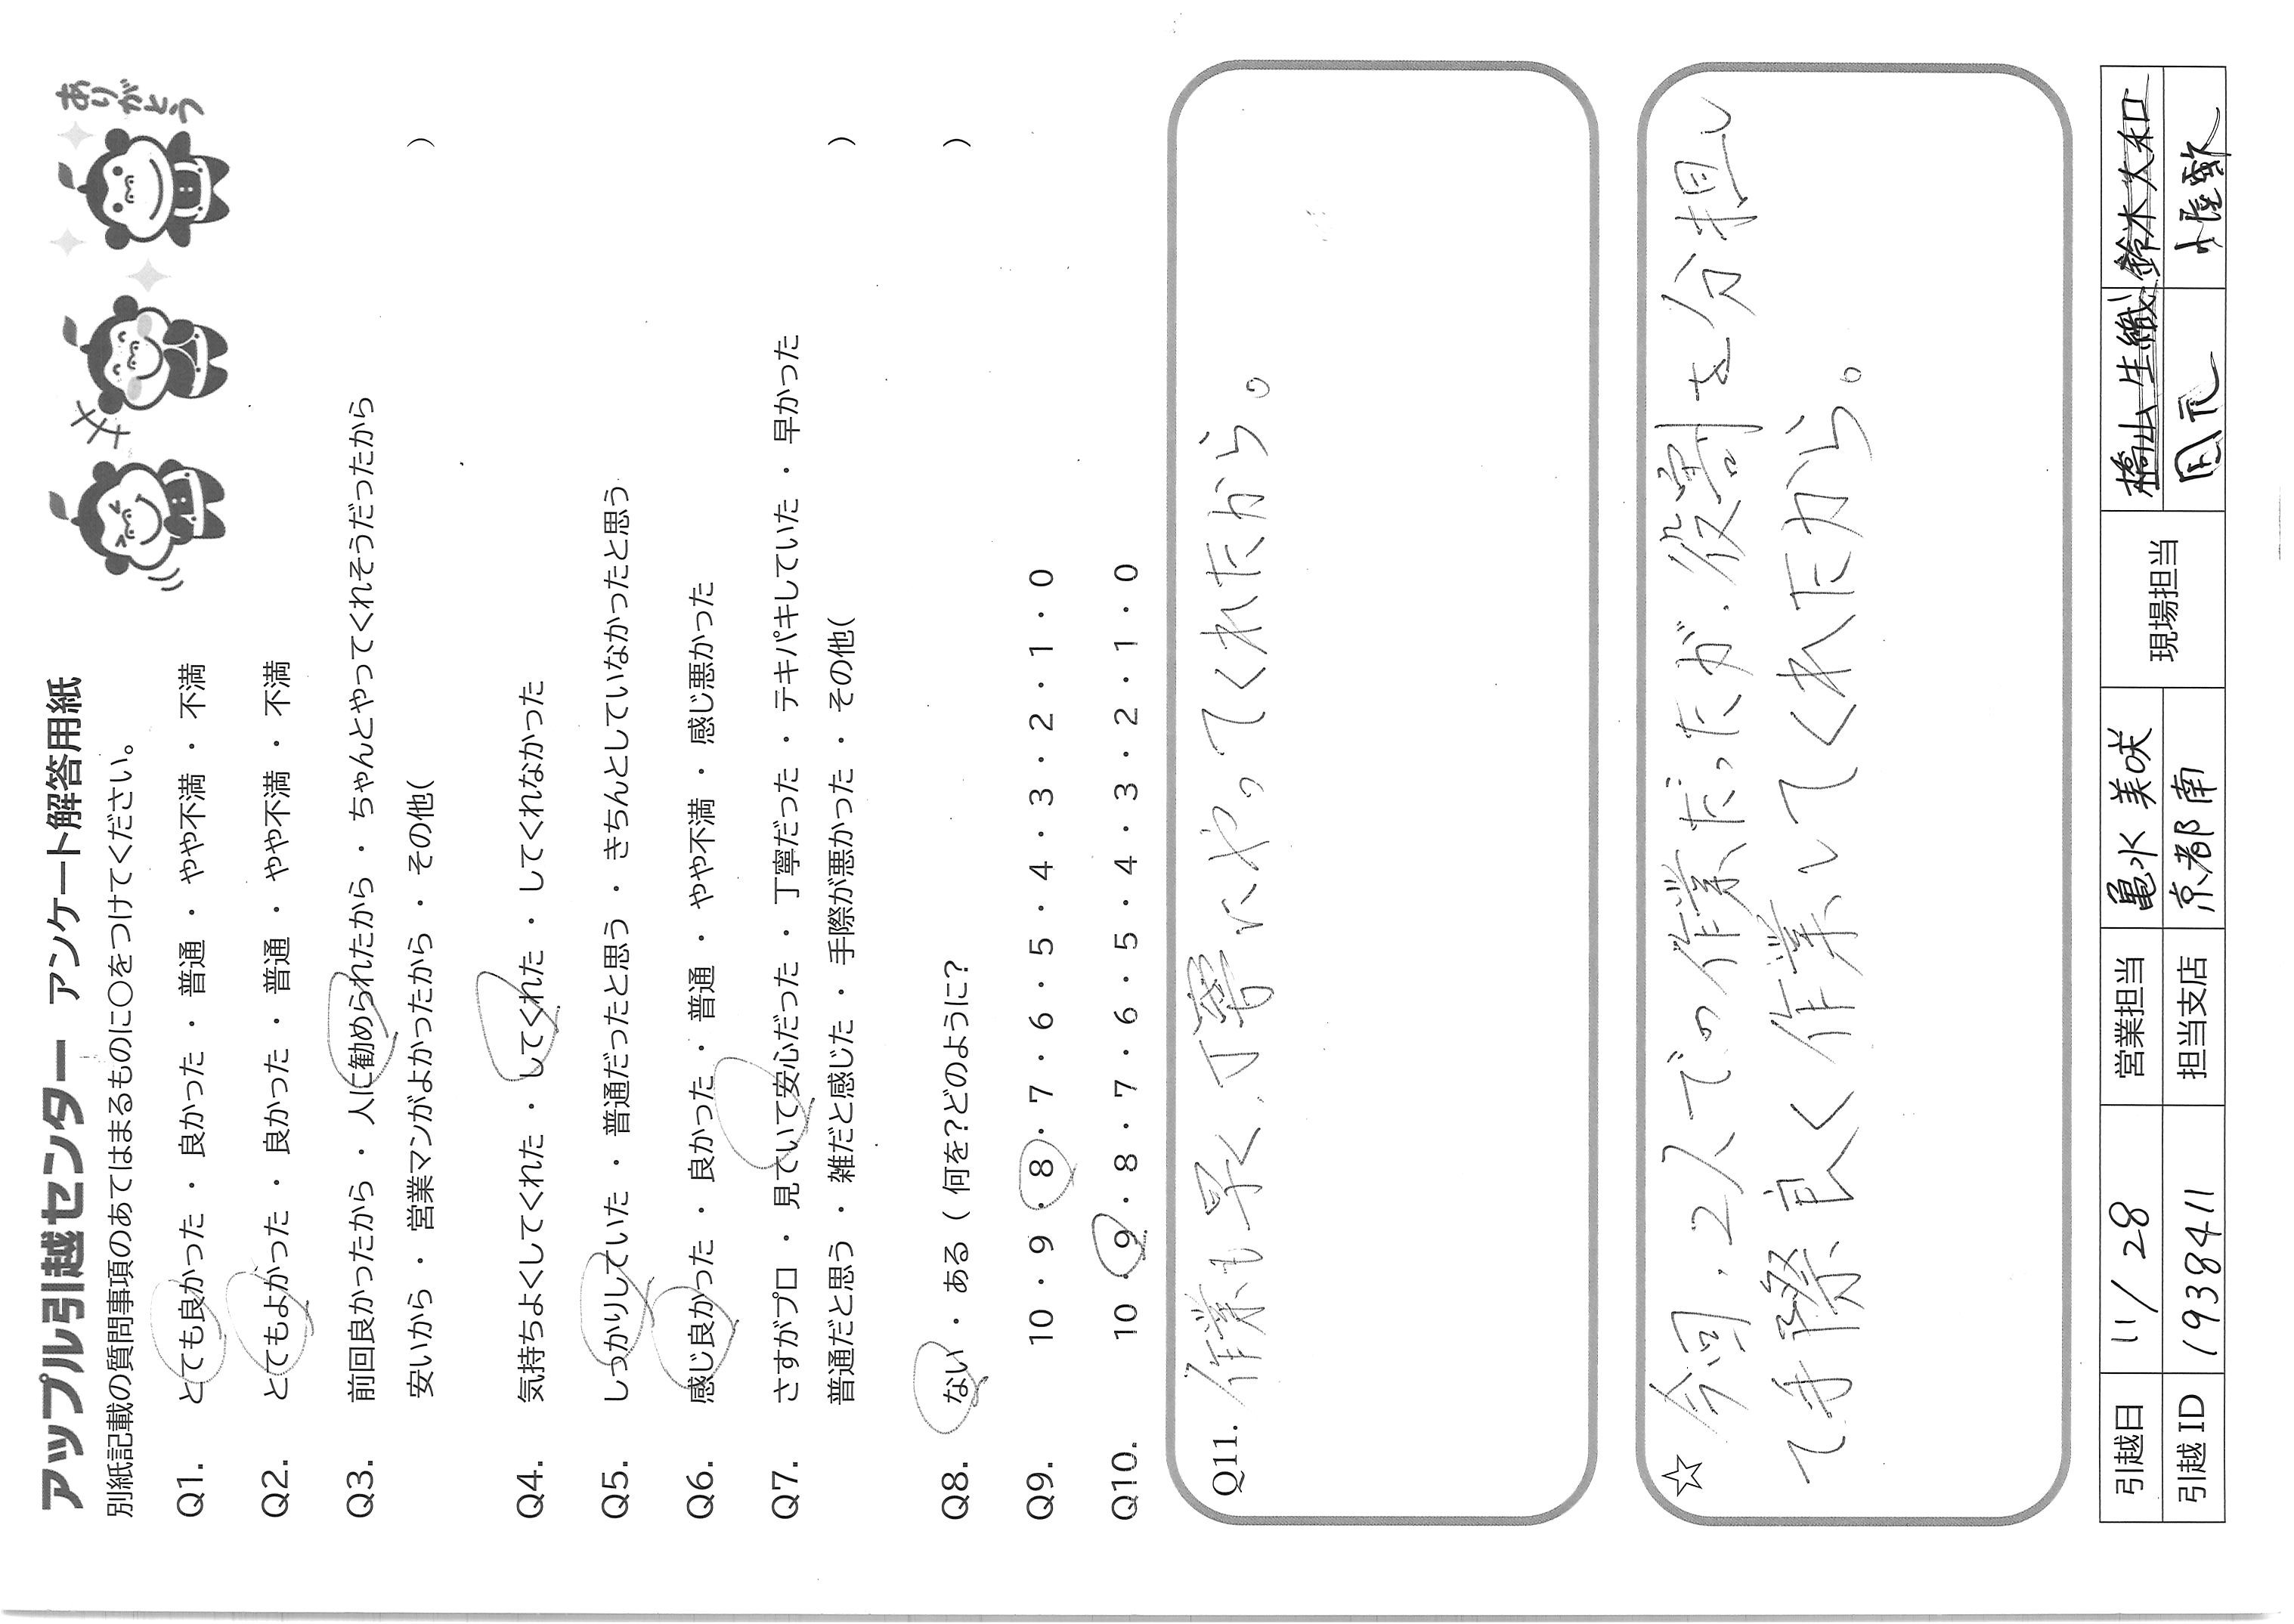 アップル引越センター アンケート解答用紙
ありがとう
別紙記載の質問事項のあてはまるものに○をつけてください。
Q1. とても良かった ・ 良かった ・ 普通 ・ やや不満 ・ 不満
Q2. とてもよかった ・ 良かった ・ 普通 ・ やや不満 ・ 不満
Q3. 前回良かったから ・ 人に勧められたから ・ ちゃんとやってくれそうだったから
安いから ・ 営業マンがよかったから ・ その他( )
Q4. 気持ちよくしてくれた ・ してくれた ・ してくれなかった
Q5. しっかりしていた ・ 普通だったと思う ・ きちんとしていなかったと思う
Q6. 感じ良かった ・ 良かった ・ 普通 ・ やや不満 ・ 感じ悪かった
Q7. さすがプロ ・ 見ていて安心だった ・ 丁寧だった ・ テキパキしていた ・ 早かった
普通だと思う ・ 雑だと感じた ・ 手際が悪かった ・ その他( )
Q8. ない ・ ある ( 何を?どのように? )
Q9. 10 ・ 9 ・ 8 ・ 7 ・ 6 ・ 5 ・ 4 ・ 3 ・ 2 ・ 1 ・ 0
Q10. 10 ・ 9 ・ 8 ・ 7 ・ 6 ・ 5 ・ 4 ・ 3 ・ 2 ・ 1 ・ 0
Q11. 作業も早く、丁寧にやってくれたから。
☆ 今回、2人での作業だったが、役割を分担し
て手際良く作業してくれたから。
引越日 11/28 営業担当 亀水 美咲 現場担当 鈴木大和
引越ID 1938411 担当支店 京都南